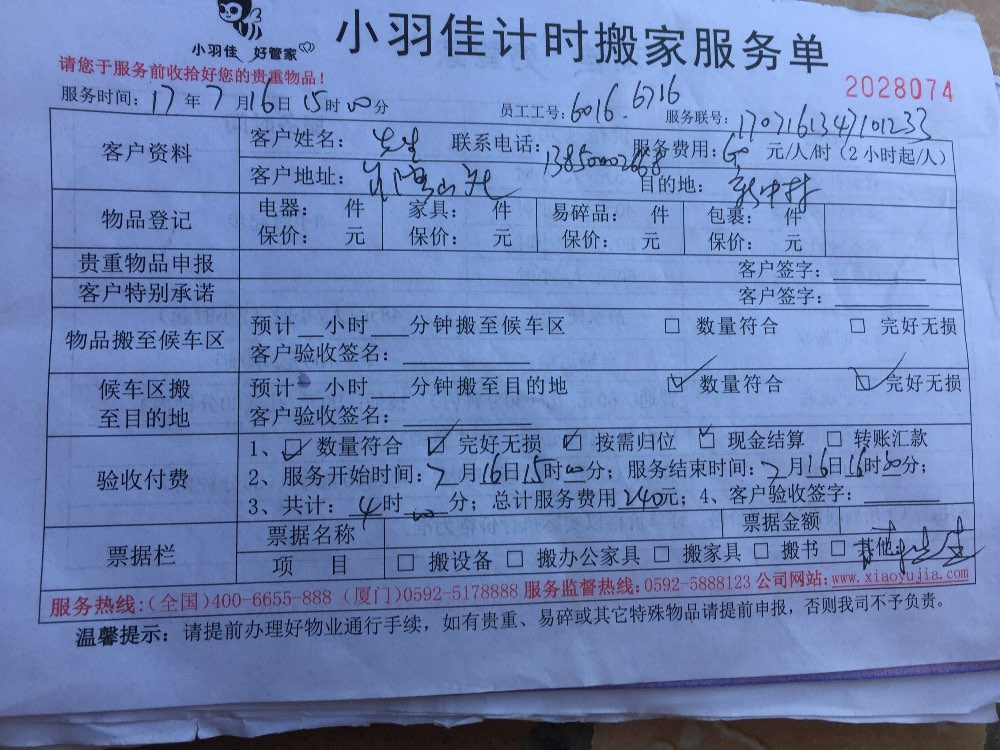 小羽佳 好管家
小羽佳计时搬家服务单
请您于服务前收拾好您的贵重物品！
2028074
服务时间：17年7月16日15时00分 员工工号：6016. 6716 服务联号：1707161347101233
客户资料 客户姓名： 先生 联系电话：13850002668 服务费用：60元/人/时（2小时起/人）
客户地址： 目的地：
物品登记 电器： 件 家具： 件 易碎品： 件 包裹： 件
保价： 元 保价： 元 保价： 元 保价： 元
贵重物品申报 客户签字：
客户特别承诺 客户签字：
物品搬至候车区 预计 小时 分钟搬至候车区 □ 数量符合 □ 完好无损
客户验收签名：
候车区搬至目的地 预计 小时 分钟搬至目的地 ☑ 数量符合 ☑ 完好无损
客户验收签名：
验收付费 1、☑ 数量符合 ☑ 完好无损 ☑ 按需归位 ☑ 现金结算 □ 转账汇款
2、服务开始时间：7月16日15时00分；服务结束时间：7月16日16时30分；
3、共计：4时00分；总计服务费用240元；4、客户验收签字：
票据栏 票据名称 票据金额
项 目 □ 搬设备 □ 搬办公家具 □ 搬家具 □ 搬书 □ 其他
服务热线：(全国)400-6655-888 (厦门)0592-5178888 服务监督热线：0592-5888123 公司网站：www.xiaoyujia.com
温馨提示：请提前办理好物业通行手续，如有贵重、易碎或其它特殊物品请提前申报，否则我司不予负责。